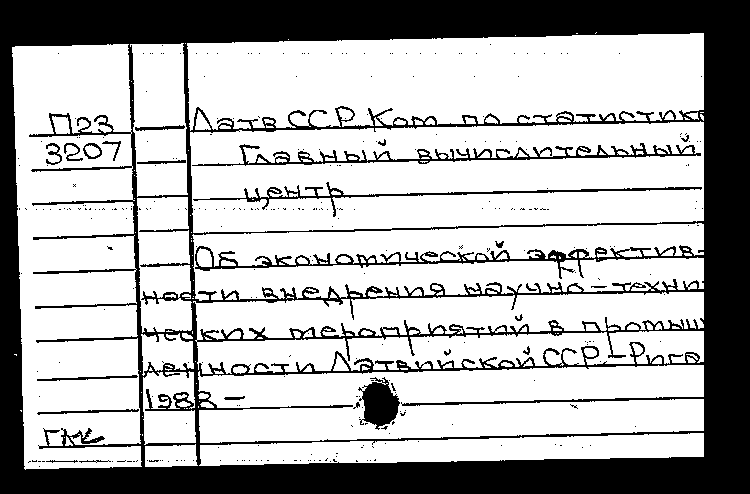 П23 Латв ССР Ком по статистике
3207 Главный вычислительный
центр
Об экономической эффектив-
ности внедрения научно-техни
ческих мероприятий в промыш
ленности Латвийской ССР.-Рига
1988-